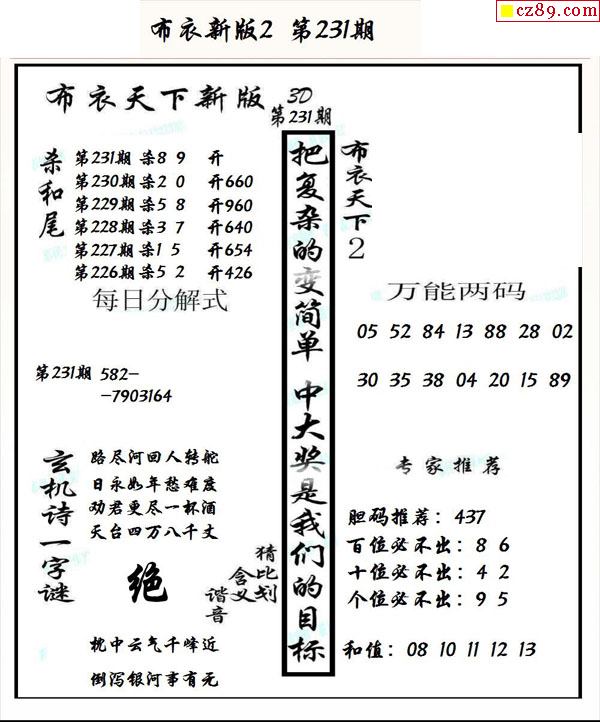 cz89.com
布衣新版2 第231期
布衣天下新版 3D
第231期
杀和尾
第231期 杀8 9 开
第230期 杀2 0 开660
第229期 杀5 8 开960
第228期 杀3 7 开640
第227期 杀1 5 开654
第226期 杀5 2 开426
每日分解式
第231期 582-
-7903164
玄机诗一字谜
路尽河回人转舵
日永如年愁难度
劝君更尽一杯酒
天台四万八千丈
绝
猜比划
含义
谐音
枕中云气千峰近
倒泻银河事有无
把复杂的变简单 中大奖是我们的目标
布衣天下2
万能两码
05 52 84 13 88 28 02
30 35 38 04 20 15 89
专家推荐
胆码推荐：437
百位必不出：8 6
十位必不出：4 2
个位必不出：9 5
和值：08 10 11 12 13